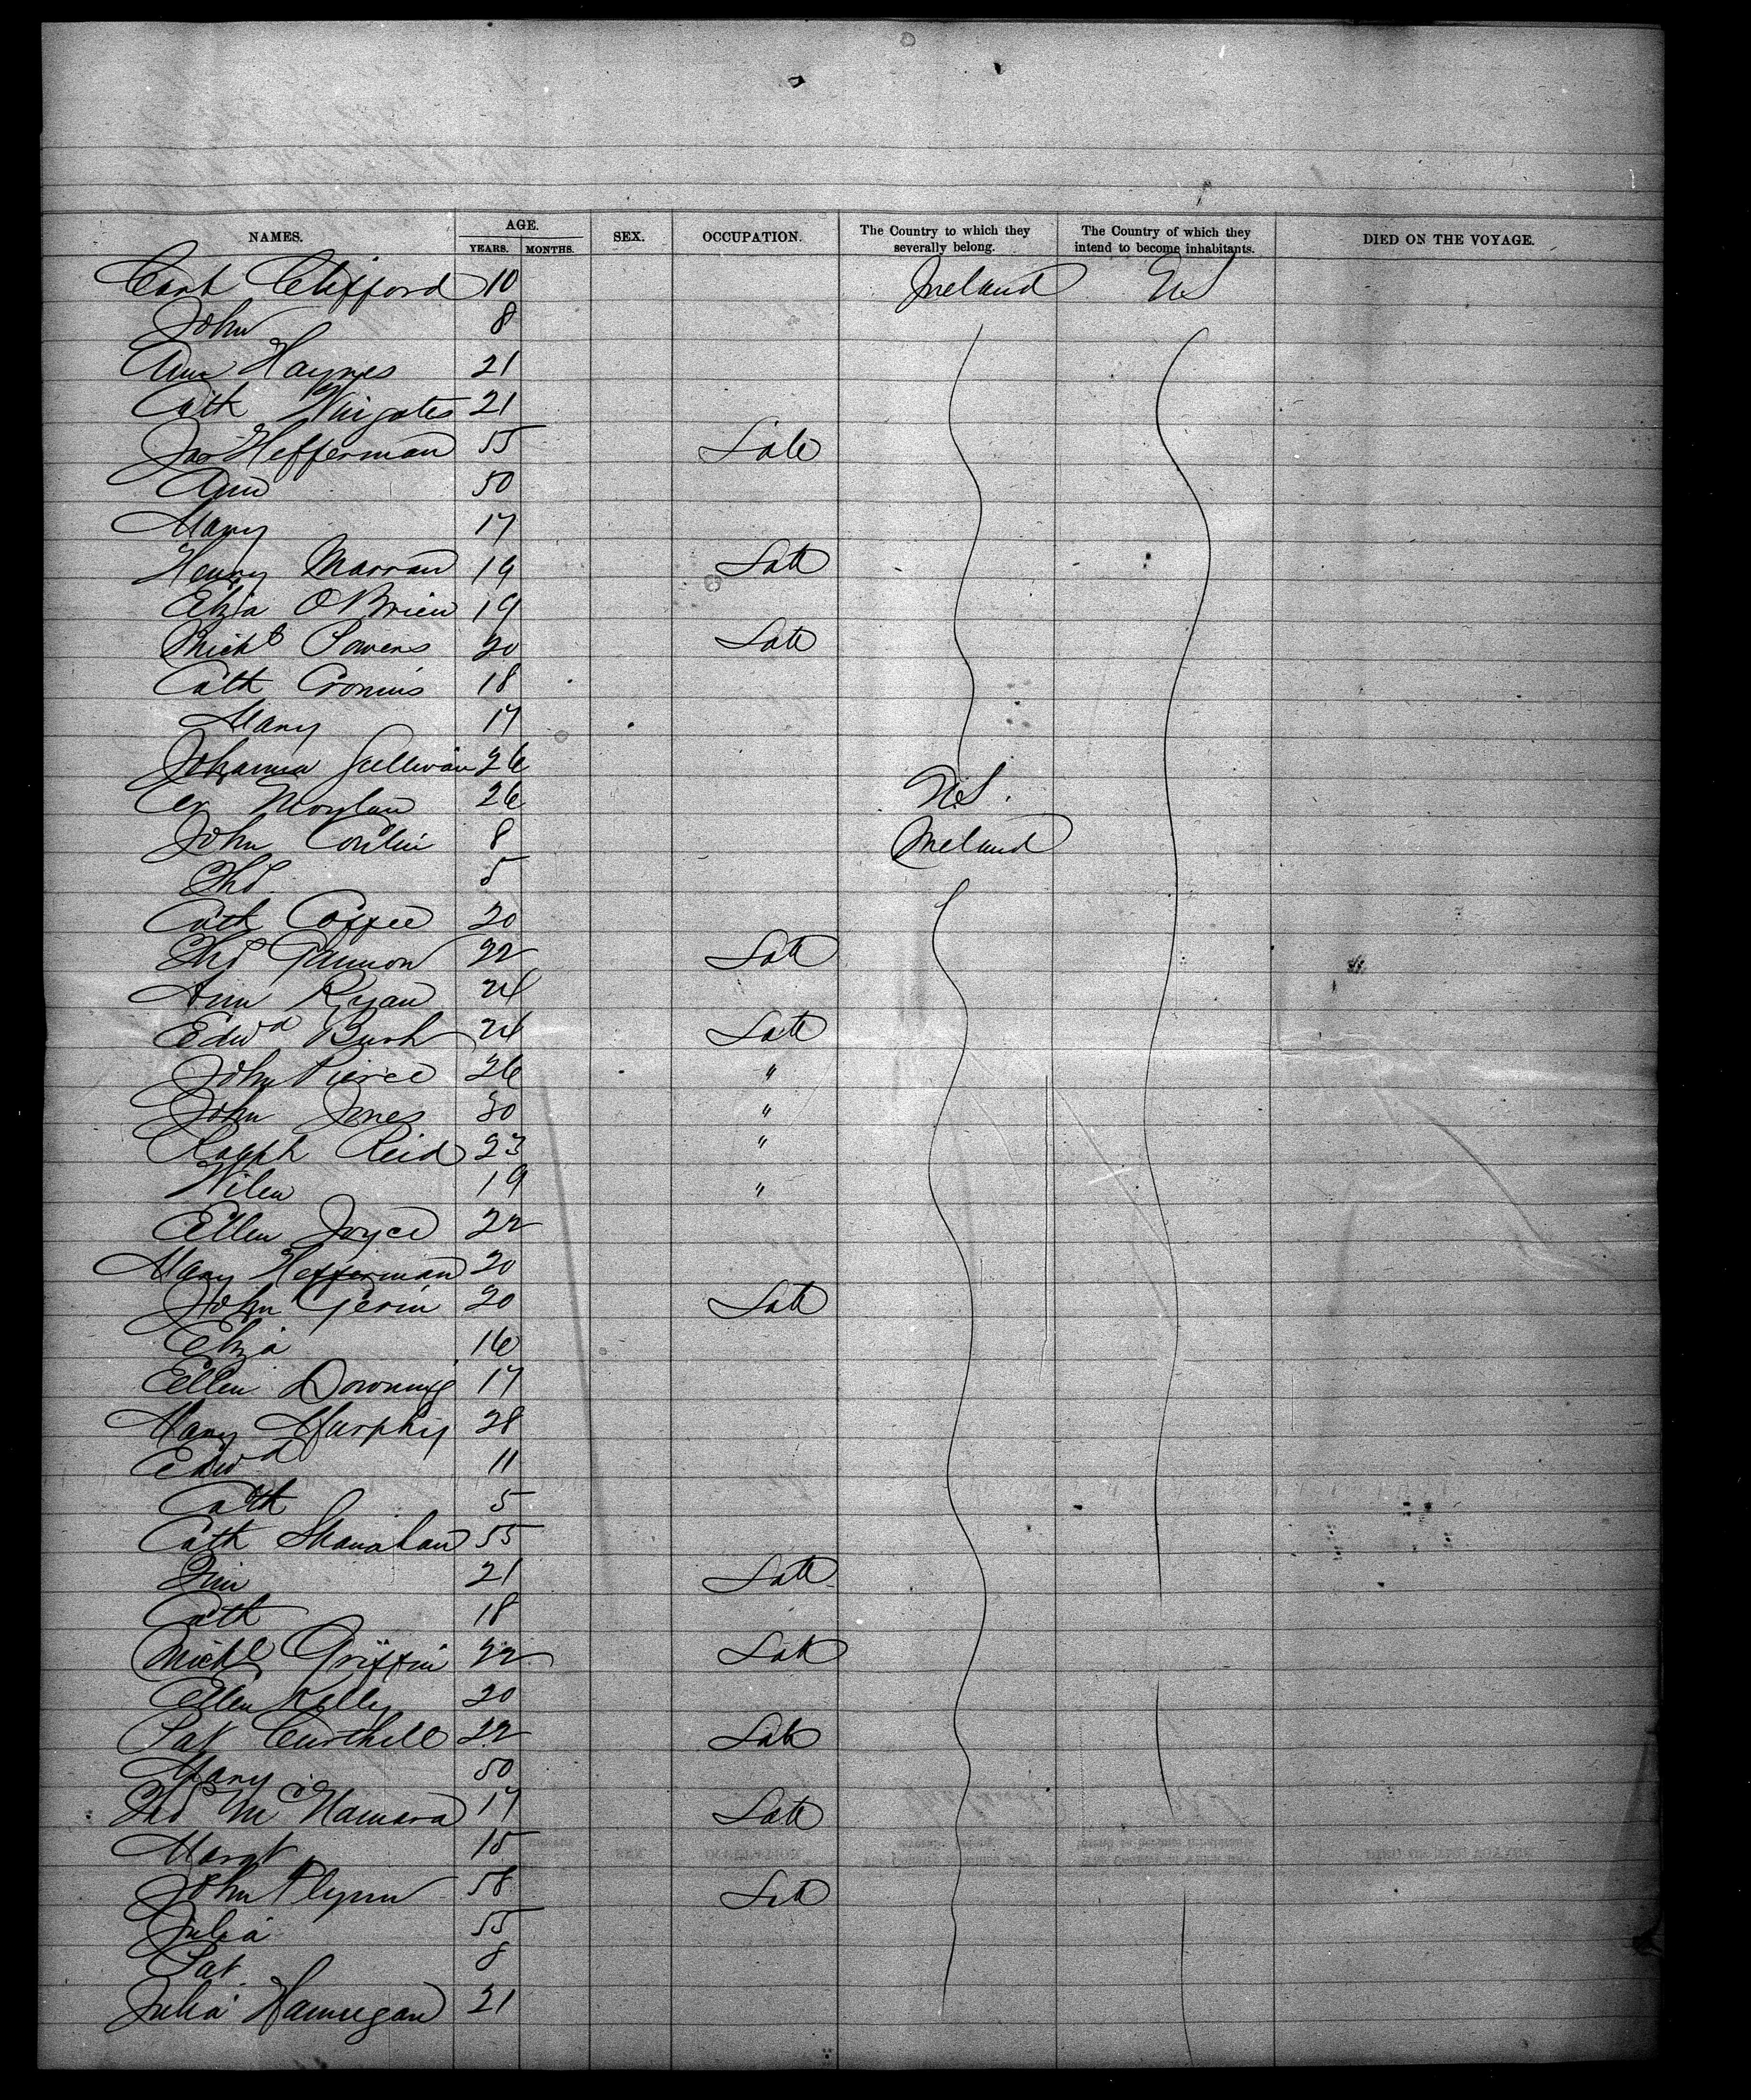 NAMES. AGE. YEARS. MONTHS. SEX. OCCUPATION. The Country to which they severally belong. The Country of which they intend to become inhabitants. DIED ON THE VOYAGE.
Clifford 10 Ireland US
John 8
Ann Haynes 21
Cath Wingates 21
Jas Hefferman 55 Lab
Ann 50
Mary 17
Henry Marran 19 Lab
Eliza O'Brien 19
Michl Powers 20 Lab
Cath Cronins 18
Mary 17
Johanna Sullivan 26
Moylan 26 US.
John Conlin 8 Ireland
Ths 5
Cath Coffee 20
Ths Gannon 22 Lab
Ann Ryan 24
Edwd Bush 24 Lab
John Pierce 26 "
John Jones 30 "
Ralph Reid 23 "
Wilm 19 "
Ellen Joyce 22
Mary Hefferman 20
John Gerin 20 Lab
Eliza 16
Ellen Downing 17
Mary Murphy 28
Edwd 11
Cath 5
Cath Shanahan 55
Jim 21 Lab
Cath 18
Michl Griffin 22 Lab
Ellen Kelly 20
Pat 22 Lab
Mary 50
Ths McNamara 17 Lab
Margt 15
John Flynn 58 Lab
Julia 55
Pat 8
Julia Hannigan 21